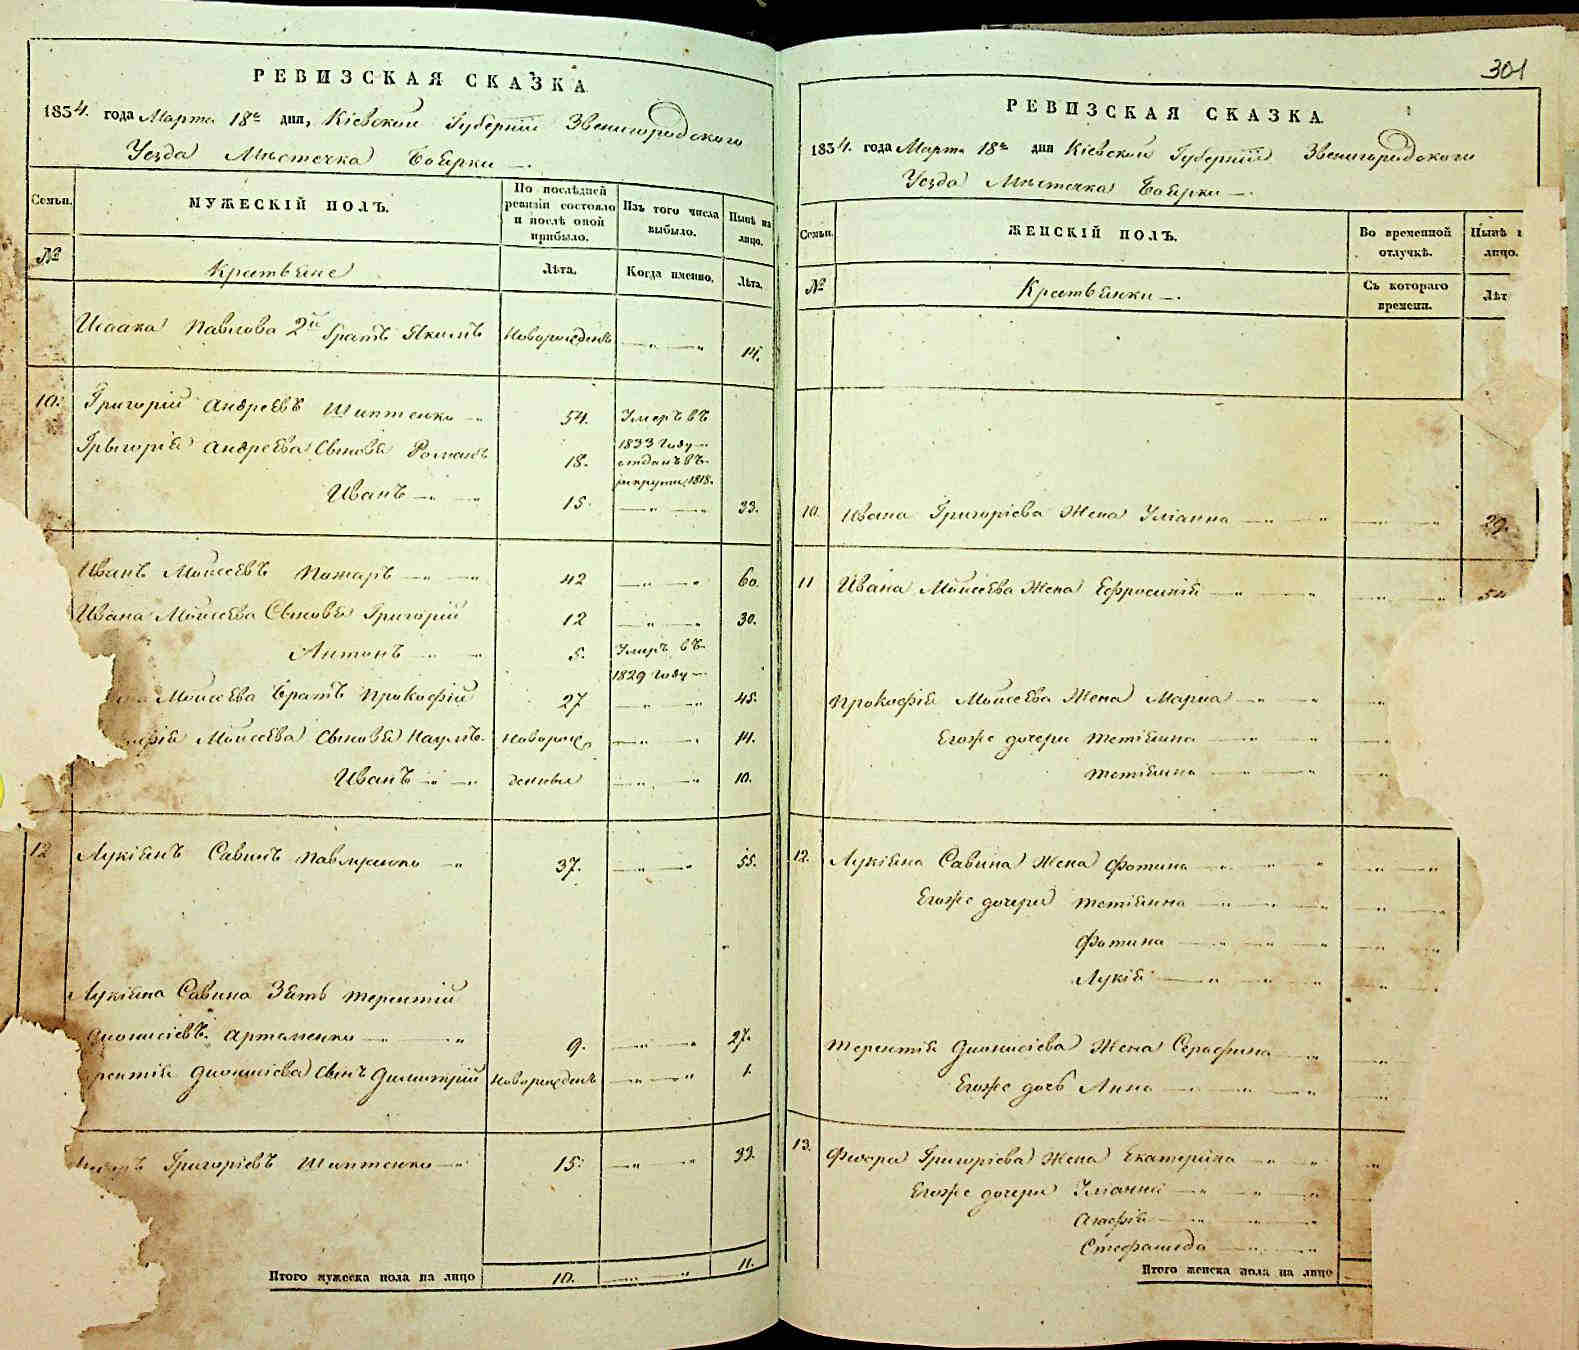 РЕВИЗСКАЯ СКАЗКА
1834. года Марта 18го дня, Кіевской Губерніи Звенигородского
Уезда Местечка Боярки
Семьи.
МУЖЕСКІЙ ПОЛЪ.
По послѣдней
ревизіи состояло
и послѣ оной
прибыло.
Изъ того числа
выбыло.
Нынѣ на
лицо.
№
Крестьяне
Лѣта.
Когда именно.
Лѣта.
Исаака Павлова 2й братъ Якимъ Новорожденъ 14.
10. Григорій Андреевъ Шиптенко 54. Умеръ въ
1833 году
Григорія Андреева Сыновья Романъ 18. отданъ въ
рекруты 1818.
Иванъ 15. 33.
Иванъ Моисеевъ Пожаръ 42 60.
Ивана Моисеева Сыновья Григорій 12 30.
Антонъ 5. Умеръ въ
1829 году
Моисеева братъ Прокофій 27 45.
Моисеева Сыновья Наумъ Новорож 14.
Иванъ денные 10.
12 Лукіянъ Савинъ Павлиренко 37. 55.
Лукіяна Савина Зять Терентій
Дионисіевъ Артеменко 9. 27.
Дионисіева Сынъ Димитрій Новорожденъ 1.
Григоріевъ Шиптенко 15. 33.
Итого мужеска пола на лицо 10. 11.
301
РЕВИЗСКАЯ СКАЗКА
1834. года Марта 18го дня Кіевской Губерніи Звенигородского
Уезда Местечка Боярки
Семьи.
ЖЕНСКІЙ ПОЛЪ.
Во временной
отлучкѣ.
Нынѣ
лицо.
№
Крестьянки
Съ котораго
времени.
Лѣт
10. Ивана Григоріева Жена Уліанна 29.
11 Ивана Моисеева Жена Ефросинія
Прокофія Моисеева Жена Мариа
Егожъ дочери Тетіянна
Тетіянна
12. Лукіяна Савина Жена Фотина
Егоже дочери Тетіянна
Фотина
Лукія
Терентія Дионисіева Жена Серафима
Егоже дочь Анна
13. Федора Григоріева Жена Екатерина
Егоже дочери Уліанна
Агафія
Стефанида
Итого женска пола на лицо